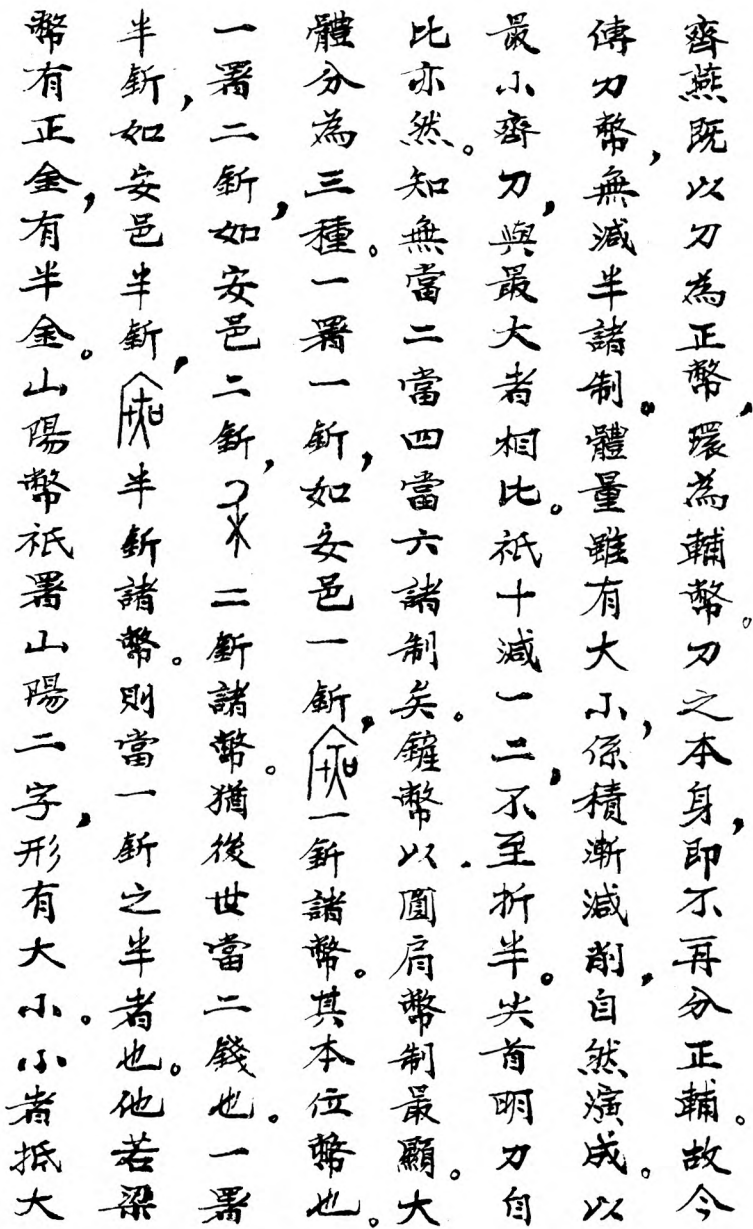 齊燕既以刀為正幣，環為輔幣。刀之本身，即不再分正輔。故今
傳刀幣，無減半諸制。體量雖有大小，係積漸減削，自然演成。以
最小齊刀，與最大者相比。祇十減一二，不至折半。尖首明刀自
比亦然。知無當二當四當六諸制矣。鏟幣以圓肩幣制最顯。大
體分為三種。一署一釿，如安邑一釿，一釿諸幣。其本位幣也。
一署二釿，如安邑二釿，二釿諸幣。猶後世當二錢也。一署
半釿，如安邑半釿，半釿諸幣。則當一釿之半者也。他若梁
幣有正金，有半金。山陽幣祇署山陽二字，形有大小。小者抵大